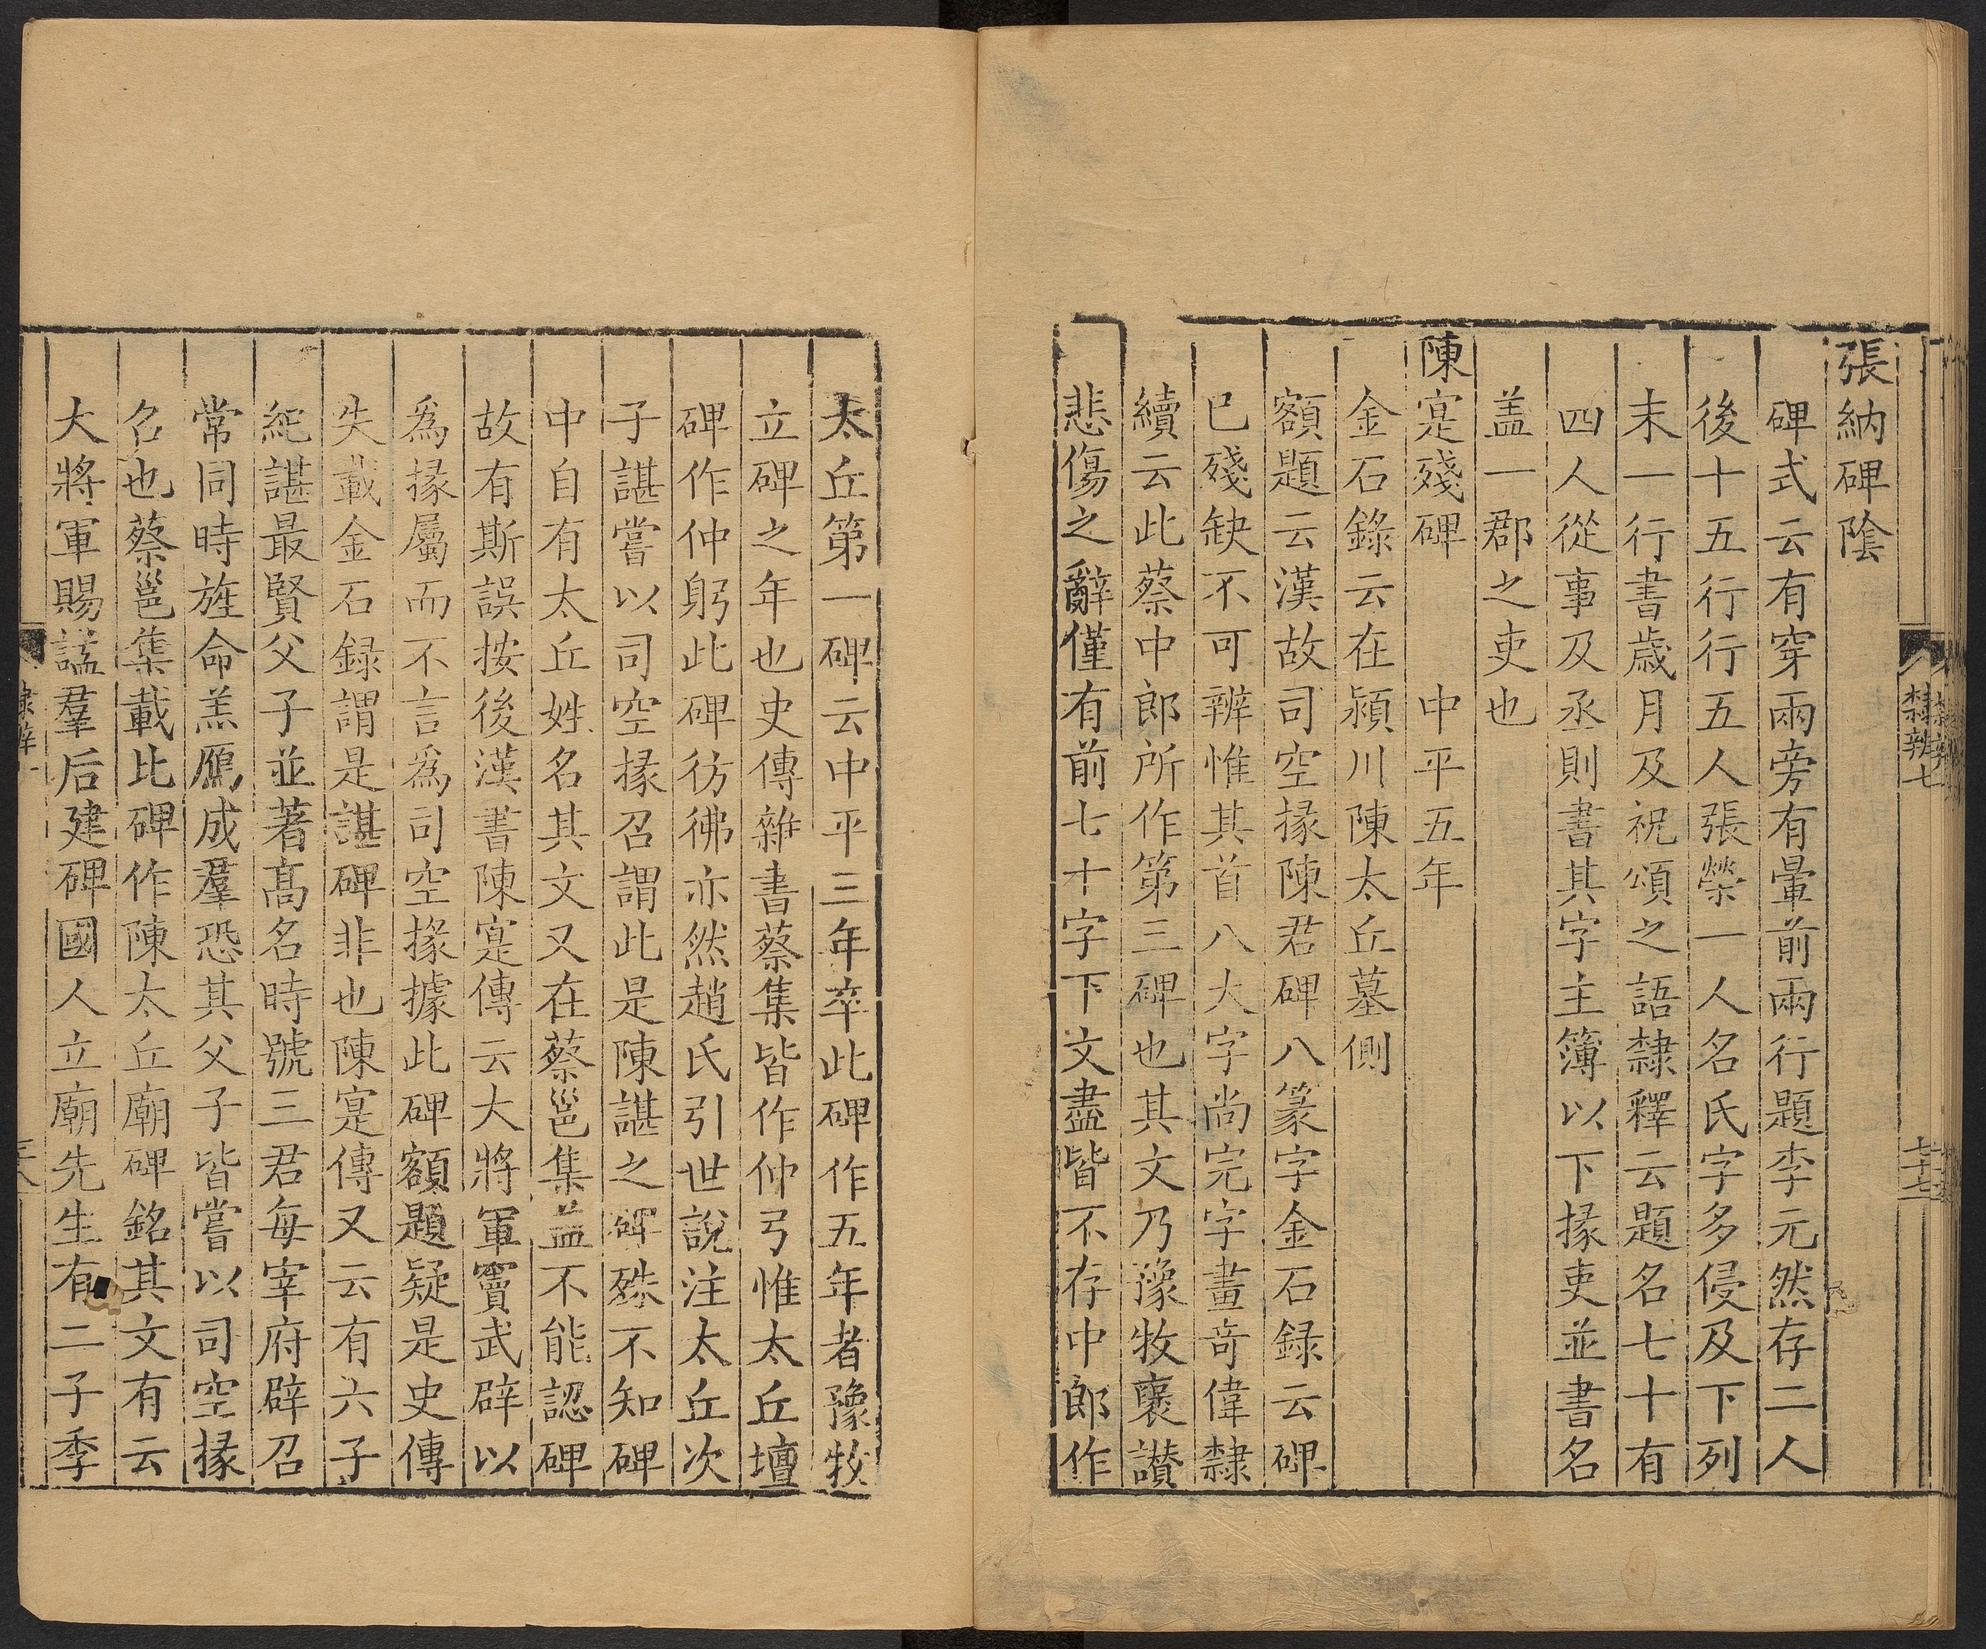 張納碑陰
碑式云有穿兩旁有暈前兩行題李元然存二人
後十五行行五人張榮一人名氏字多侵及下列
末一行書歲月及祝頌之語隸釋云題名七十有
四人從事及丞則書其字主簿以下掾吏並書名
盖一郡之吏也
陳寔殘碑 中平五年
金石錄云在潁川陳太丘墓側
額題云漢故司空掾陳君碑八篆字金石録云碑
已殘缺不可辨惟其首八大字尚完字畫奇偉隸
續云此蔡中郎所作第三碑也其文乃豫牧襃讃
悲傷之辭僅有前七十字下文盡皆不存中郎作
太丘第一碑云中平三年卒此碑作五年者豫牧
立碑之年也史傳雜書蔡集皆作仲弓惟太丘壇
碑作仲躬此碑彷彿亦然趙氏引世說注太丘次
子諶嘗以司空掾召謂此是陳諶之碑殊不知碑
中自有太丘姓名其文又在蔡邕集益不能認碑
故有斯誤按後漢書陳寔傳云大將軍竇武辟以
爲掾屬而不言爲司空掾據此碑額題疑是史傳
失載金石録謂是諶碑非也陳寔傳又云有六子
紀諶最賢父子並著髙名時號三君每宰府辟召
常同時旌命羔鴈成羣恐其父子皆嘗以司空掾
名也蔡邕集載此碑作陳太丘廟碑銘其文有云
大將軍賜諡羣后建碑國人立廟先生有二子季
隸辨七
七十七